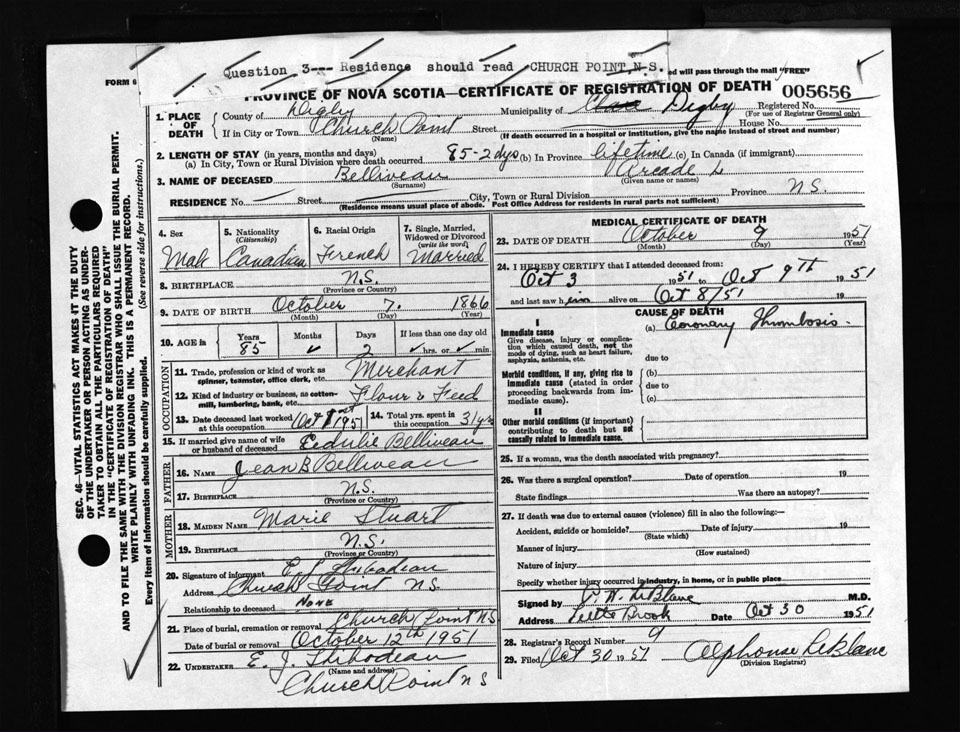 Question 3--- Residence should read CHURCH POINT, N.S.
FORM 6
ed will pass through the mail "FREE"
PROVINCE OF NOVA SCOTIA—CERTIFICATE OF REGISTRATION OF DEATH 005656
1. PLACE OF DEATH County of Digby Municipality of Clare Digby Registered No.
(For use of Registrar General only)
If in City or Town Church Point Street House No.
(Name) (If death occurred in a hospital or institution, give the name instead of street and number)
2. LENGTH OF STAY (in years, months and days)
(a) In City, Town or Rural Division where death occurred 85-2 dys (b) In Province lifetime (c) In Canada (if immigrant)
3. NAME OF DECEASED Belliveau Arcade L
(Surname) (Given name or names)
RESIDENCE No. Street City, Town or Rural Division Province N.S.
(Residence means usual place of abode. Post Office Address for residents in rural parts not sufficient)
4. Sex 5. Nationality (Citizenship) 6. Racial Origin 7. Single, Married, Widowed or Divorced (write the word)
Male Canadian French Married
8. BIRTHPLACE N.S.
(Province or Country)
9. DATE OF BIRTH October 7. 1866
(Month) (Day) (Year)
10. AGE in Years Months Days If less than one day old
85 ✓ 2 ✓ hrs. or ✓ min.
OCCUPATION
11. Trade, profession or kind of work as spinner, teamster, office clerk, etc. Merchant
12. Kind of industry or business, as cotton-mill, lumbering, bank, etc. Flour & Feed
13. Date deceased last worked at this occupation Oct 1st 1951 14. Total yrs. spent in this occupation 31 yrs
15. If married give name of wife or husband of deceased Eidulie Belliveau
FATHER
16. NAME Jean B Belliveau
17. BIRTHPLACE N.S.
(Province or Country)
MOTHER
18. MAIDEN NAME Marie Stuart
19. BIRTHPLACE N.S.
(Province or Country)
20. Signature of informant E J Thibodeau
Address Church Point N S
Relationship to deceased None
21. Place of burial, cremation or removal Church Point N S
Date of burial or removal October 12th 1951
22. UNDERTAKER E. J. Thibodeau
(Name and address)
Church Point N S
MEDICAL CERTIFICATE OF DEATH
23. DATE OF DEATH October 9 1951
(Month) (Day) (Year)
24. I HEREBY CERTIFY that I attended deceased from:
Oct 3 1951 to Oct 9th 1951
and last saw him alive on Oct 8/51 19
CAUSE OF DEATH
I
Immediate cause (a) Coronary Thrombosis.
Give disease, injury or complication which caused death, not the mode of dying, such as heart failure, asphyxia, asthenia, etc.
due to
Morbid conditions, if any, giving rise to immediate cause (stated in order proceeding backwards from immediate cause).
(b)
due to
(c)
II
Other morbid conditions (if important) contributing to death but not causally related to immediate cause.
25. If a woman, was the death associated with pregnancy?
26. Was there a surgical operation? Date of operation 19
State findings Was there an autopsy?
27. If death was due to external causes (violence) fill in also the following:—
Accident, suicide or homicide? Date of injury 19
(State which)
Manner of injury
(How sustained)
Nature of injury
Specify whether injury occurred in industry, in home, or in public place
Signed by P. W. LeBlanc M.D.
Address Little Brook Date Oct 30 1951
28. Registrar's Record Number 9
29. Filed Oct 30 1951 Alphonse LeBlanc
(Division Registrar)
SEC. 46—VITAL STATISTICS ACT MAKES IT THE DUTY
OF THE UNDERTAKER OR PERSON ACTING AS UNDER-
TAKER TO OBTAIN ALL THE PARTICULARS REQUIRED
IN THE "CERTIFICATE OF REGISTRATION OF DEATH"
AND TO FILE THE SAME WITH THE DIVISION REGISTRAR WHO SHALL ISSUE THE BURIAL PERMIT.
WRITE PLAINLY WITH UNFADING INK. THIS IS A PERMANENT RECORD.
Every item of Information should be carefully supplied. (See reverse side for instructions.)